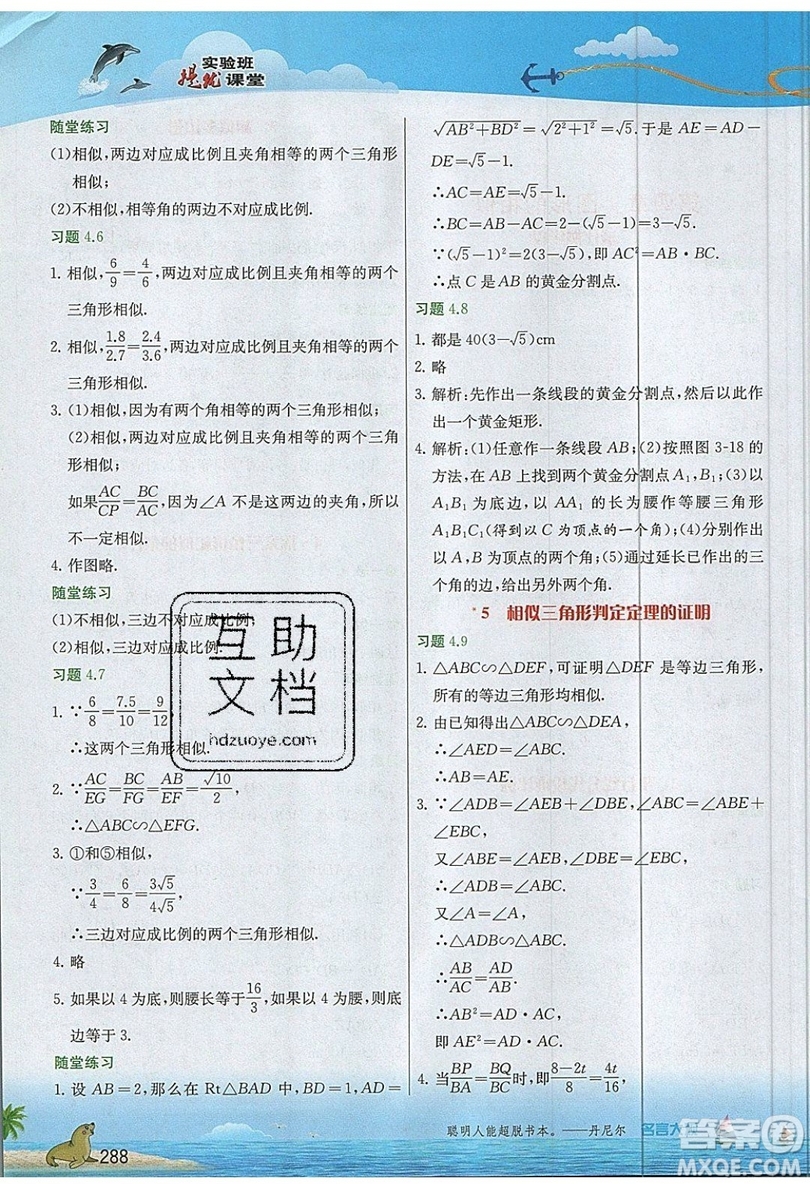 实验班
提优课堂
随堂练习
(1)相似,两边对应成比例且夹角相等的两个三角形
相似;
(2)不相似,相等角的两边不对应成比例.
习题 4.6
1. 相似,6/9=4/6,两边对应成比例且夹角相等的两个
三角形相似.
2. 相似,1.8/2.7=2.4/3.6,两边对应成比例且夹角相等的两个
三角形相似.
3. (1)相似,因为有两个角相等的两个三角形相似;
(2)相似,两边对应成比例且夹角相等的两个三角形
相似;
如果AC/CP=BC/AC,因为∠A 不是这两边的夹角,所以
不一定相似.
4. 作图略.
随堂练习
(1)不相似,三边不对应成比例;
(2)相似,三边对应成比例.
习题 4.7
1. ∵6/8=7.5/10=9/12,
∴这两个三角形相似.
2. ∵AC/EG=BC/FG=AB/EF=√10/2,
∴△ABC∽△EFG.
3. ①和⑤相似,
∵3/4=6/8=3√5/4√5,
∴三边对应成比例的两个三角形相似.
4. 略
5. 如果以 4 为底,则腰长等于16/3,如果以 4 为腰,则底
边等于 3.
随堂练习
1. 设 AB=2,那么在 Rt△BAD 中,BD=1,AD=
√AB²+BD²=√2²+1²=√5. 于是 AE=AD-
DE=√5-1.
∴AC=AE=√5-1.
∴BC=AB-AC=2-(√5-1)=3-√5.
∵(√5-1)²=2(3-√5),即 AC²=AB·BC.
∴点 C 是 AB 的黄金分割点.
习题 4.8
1. 都是 40(3-√5)cm
2. 略
3. 解析:先作出一条线段的黄金分割点,然后以此作
出一个黄金矩形.
4. 解析:(1)任意作一条线段 AB;(2)按照图 3-18 的
方法,在 AB 上找到两个黄金分割点 A₁,B₁;(3)以
A₁B₁ 为底边,以 AA₁ 的长为腰作等腰三角形
A₁B₁C(得到以 C 为顶点的一个角);(4)分别作出
以 A,B 为顶点的两个角;(5)通过延长已作出的三
个角的边,给出另外两个角.
*5 相似三角形判定定理的证明
习题 4.9
1. △ABC∽△DEF,可证明△DEF 是等边三角形,
所有的等边三角形均相似.
2. 由已知得出△ABC∽△DEA,
∴∠AED=∠ABC.
∴AB=AE.
3. ∵∠ADB=∠AEB+∠DBE,∠ABC=∠ABE+
∠EBC,
又∠ABE=∠AEB,∠DBE=∠EBC,
∴∠ADB=∠ABC.
又∠A=∠A,
∴△ADB∽△ABC.
∴AB/AC=AD/AB.
∴AB²=AD·AC,
即 AE²=AD·AC.
4. 当BP/BA=BQ/BC时,即8-2t/8=4t/16,
互助
文档
hdzuoye.com
288
聪明人能超脱书本。——丹尼尔
名言大
答案
MXQE.COM